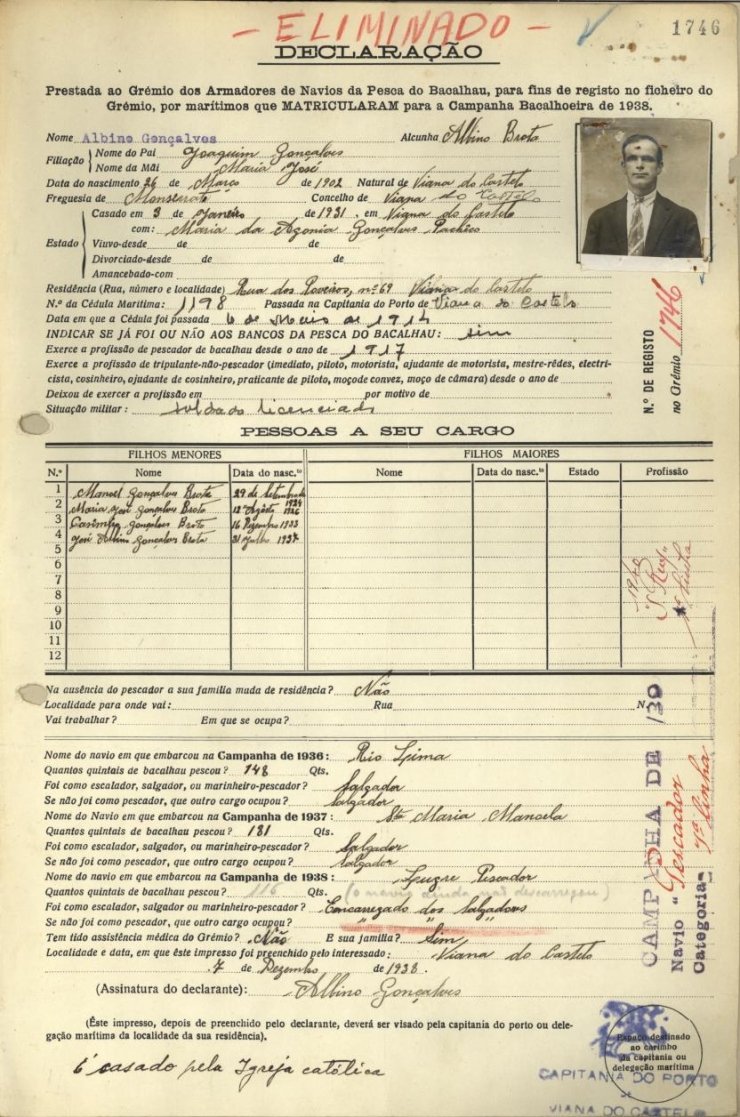 - ELIMINADO -
1746
DECLARAÇÃO
Prestada ao Grémio dos Armadores de Navios da Pesca do Bacalhau, para fins de registo no ficheiro do
Grémio, por marítimos que MATRICULARAM para a Campanha Bacalhoeira de 1938.
Nome Albino Gonçalves Alcunha Albino Broto
Filiação Nome do Pai Joaquim Gonçalves
Nome da Mãi Maria José
Data do nascimento 26 de Março de 1902 Natural de Viana do Castelo
Freguesia de Monserrate Concelho de Viana do Castelo
Estado Casado em 3 de Janeiro de 1931, em Viana do Castelo
com: Maria da Agonia Gonçalves Pacheco
Viuvo-desde de de
Divorciado-desde de de
Amancebado-com
Residência (Rua, número e localidade) Rua dos Poveiros, nº 69 Viana do Castelo
N.º da Cédula Marítima: 1198 Passada na Capitania do Porto de Viana do Castelo
Data em que a Cédula foi passada 6 de Maio de 1914
INDICAR SE JÁ FOI OU NÃO AOS BANCOS DA PESCA DO BACALHAU: sim
Exerce a profissão de pescador de bacalhau desde o ano de 1917
Exerce a profissão de tripulante-não-pescador (imediato, piloto, motorista, ajudante de motorista, mestre-rêdes, electri-
cista, cosinheiro, ajudante de cosinheiro, praticante de piloto, moço de convez, moço de câmara) desde o ano de
Deixou de exercer a profissão em por motivo de
Situação militar: soldado licenciado
N.º DE REGISTO
no Grémio 1746
PESSOAS A SEU CARGO
FILHOS MENORES FILHOS MAIORES
N.º Nome Data do nasc.to Nome Data do nasc.to Estado Profissão
1 Manuel Gonçalves Broto 29 de Setembro 1924
2 Maria José Gonçalves Broto 12 Agosto 1926
3 Casimiro Gonçalves Broto 16 Dezembro 1933
4 José Albino Gonçalves Broto 31 Julho 1937
5
6
7
8
9
10
11
12
1940
1ª linha
Na ausência do pescador a sua família muda de residência? Não
Localidade para onde vai: Rua N.º
Vai trabalhar? Em que se ocupa?
Nome do navio em que embarcou na Campanha de 1936: Rio Lima
Quantos quintais de bacalhau pescou? 148 Qts.
Foi como escalador, salgador, ou marinheiro-pescador? Salgador
Se não foi como pescador, que outro cargo ocupou? Salgador
Nome do Navio em que embarcou na Campanha de 1937: Stª Maria Manuela
Quantos quintais de bacalhau pescou? 181 Qts.
Foi como escalador, salgador, ou marinheiro-pescador? Salgador
Se não foi como pescador, que outro cargo ocupou? Salgador
Nome do navio em que embarcou na Campanha de 1938: Lugre Pescador
Quantos quintais de bacalhau pescou? 116 Qts. (o navio ainda não descarregou)
Foi como escalador, salgador ou marinheiro-pescador? Encarregado dos Salgadores
Se não foi como pescador, que outro cargo ocupou? " " "
Tem tido assistência médica do Grémio? Não E sua família? Sim
Localidade e data, em que êste impresso foi preenchido pelo interessado: Viana do Castelo
7 de Dezembro de 1938.
(Assinatura do declarante): Albino Gonçalves
CAMPANHA DE 139
Navio "Pescador
Categoria- 1ª linha
(Êste impresso, depois de preenchido pelo declarante, deverá ser visado pela capitania do porto ou dele-
gação marítima da localidade da sua residência).
É casado pela Igreja católica
Espaço destinado
ao carimbo
da capitania ou
delegação marítima
CAPITANIA DO PORTO
VIANA DO CASTELO